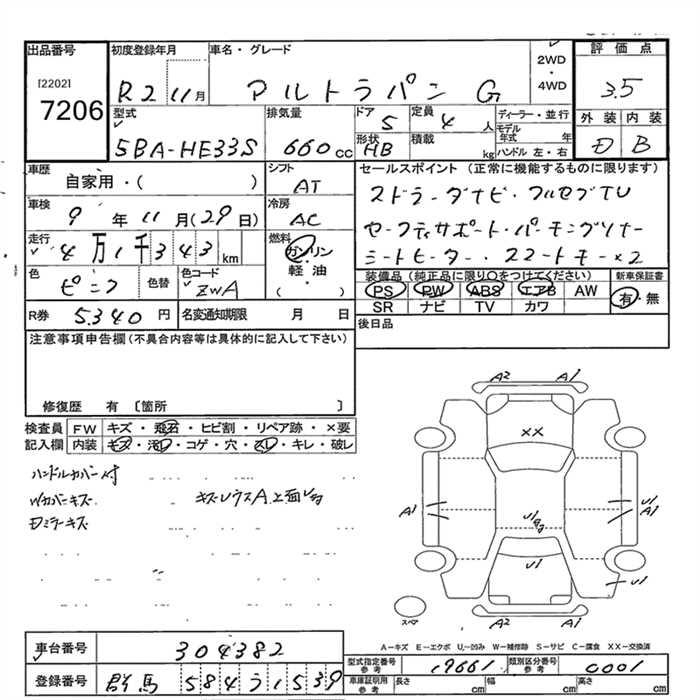 出品番号
[2202]
7206
初度登録年月
R2 11月
車名・グレード
アルトラパン G
2WD
・
4WD
評価点
3.5
外装 内装
D B
型式
5BA-HE33S
排気量
660cc
ドア
5
定員
4人
形状
HB
積載
kg
ディーラー・並行
モデル年式 年
ハンドル 左・右
車歴
自家用・( )
シフト
AT
車検
9年11月(29日)
冷房
AC
走行
4万1千343km
燃料
ガソリン
軽・油
( )
色
ピンク
色替
色コード
ZWA
R券
5340円
名変通知期限 月 日
セールスポイント (正常に機能するものに限ります)
ストラーダナビ・フルセグTV
セーフティサポート・パーキングソナー
シートヒーター・スマートキー×2
装備品(純正品に限り○をつけてください)
PS PW ABS エアB AW
SR ナビ TV カワ
新車保証書
有・無
後日品
注意事項申告欄(不具合内容等は具体的に記入して下さい)
修復歴 有 〔箇所 〕
検査員記入欄
FW キズ・飛石・ヒビ割・リペア跡・×要
内装 キズ・汚レ・コゲ・穴・スレ・キレ・破レ
ハンドルカバー付
Wカバーキズ
Dミラーキズ
A2 A1
XX
A1
U1
A1
U1
U1
A2 A1
スペア
A-キズ E-エクボ U-凹み W-補修跡 S-サビ C-腐食 XX-交換済
車台番号
304382
登録番号
群馬 584 う 1539
型式指定番号
参考
19661
類別区分番号
参考
0001
車庫証明用
参考
長さ cm 幅 cm 高さ cm